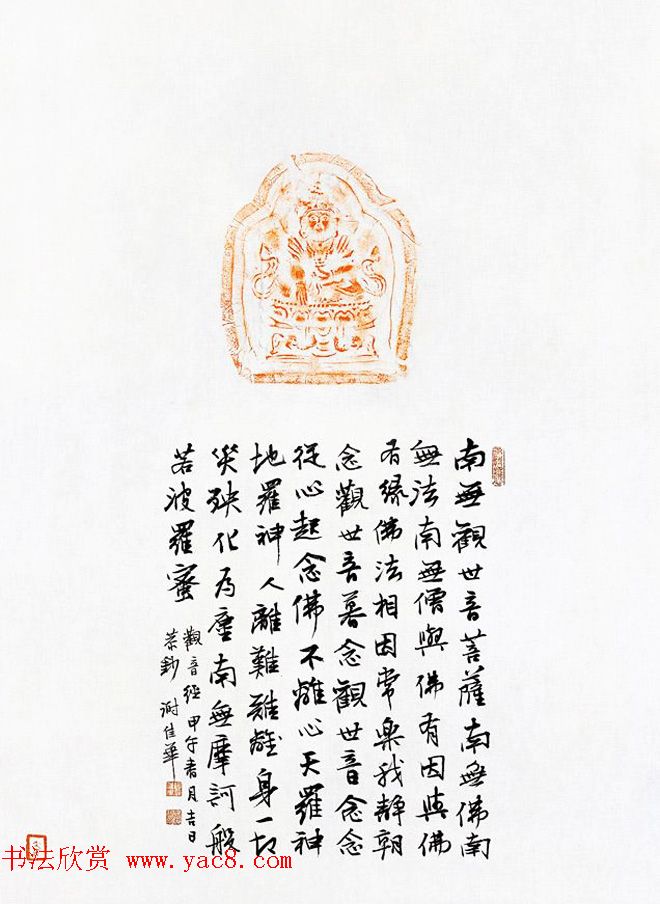 南無觀世音菩薩南無佛南
無法南無僧與佛有因與佛
有緣佛法相因常樂我靜朝
念觀世音暮念觀世音念念
從心起念佛不離心天羅神
地羅神人離難難離身一切
災殃化為塵南無摩訶般
若波羅蜜
觀音經甲午月吉日
恭鈔 謝佳華
书法欣赏 www.yac8.com